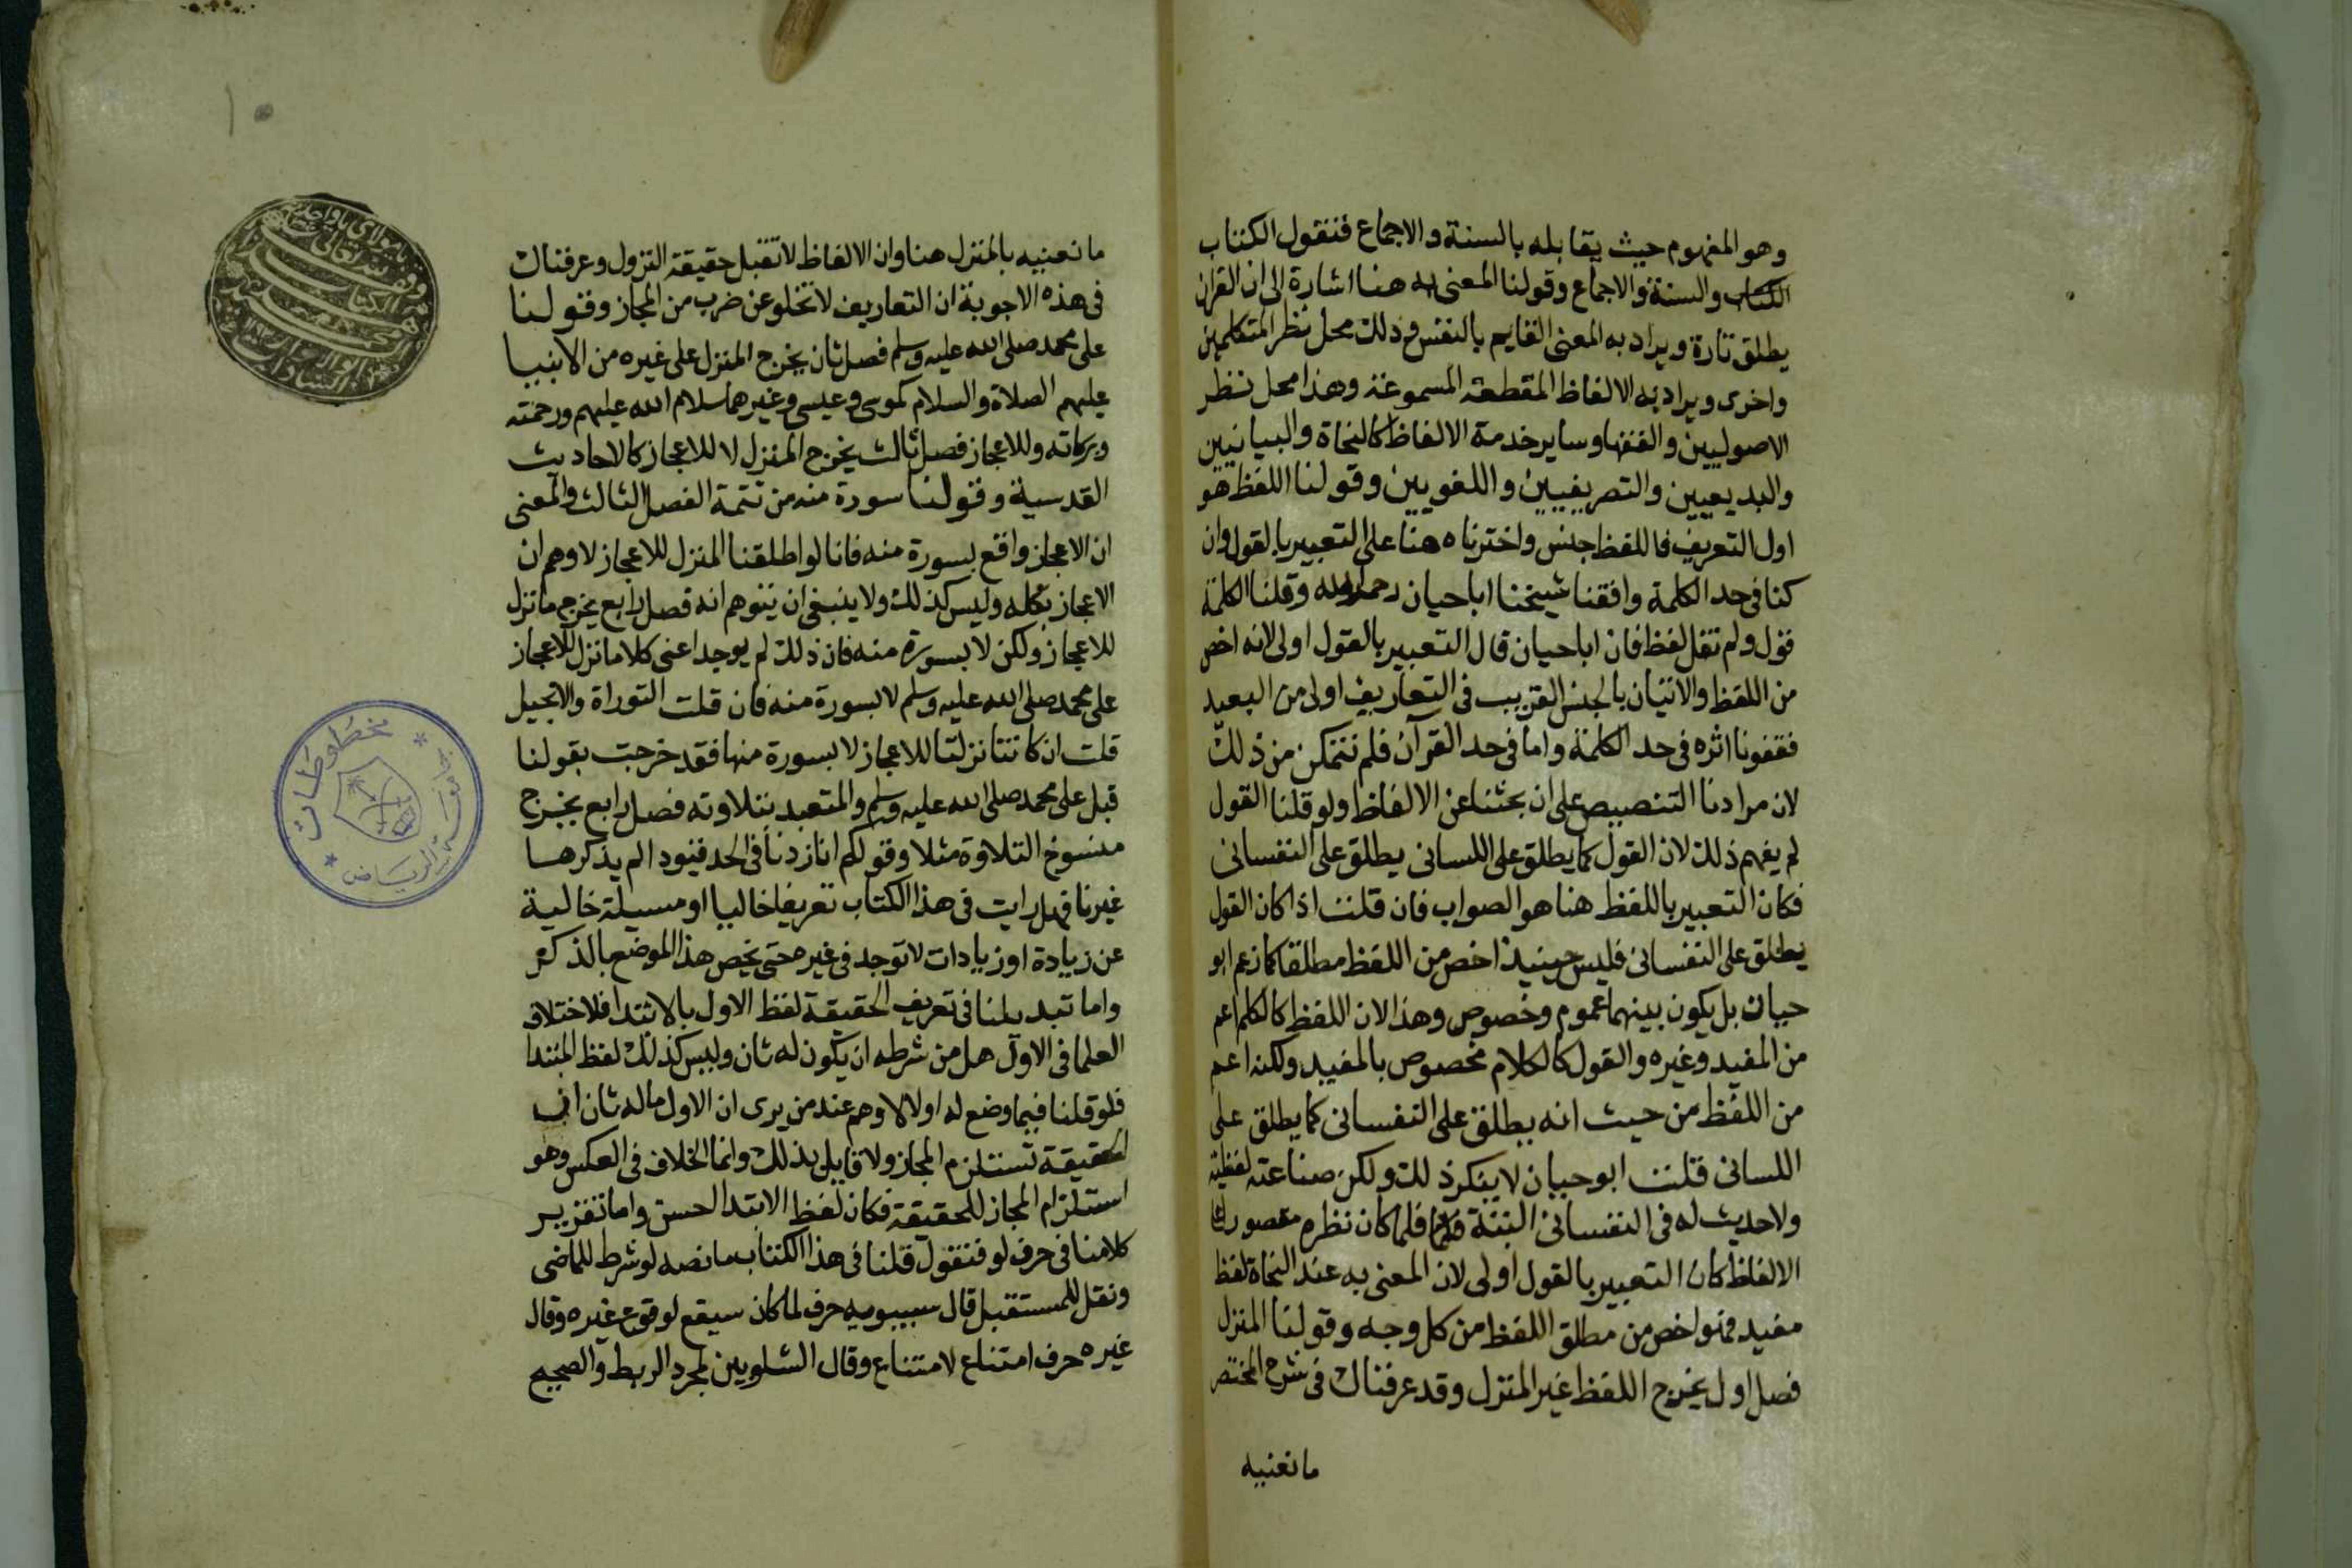 وهو المفهوم حيث يقابله بالسنة والاجماع فنقول الكتاب
الكتاب والسنة والاجماع وقولنا المعنى به هنا اشارة الى ان القران
يطلق تارة ويراد به المعنى القايم بالنفس وذلك محل نظر المتكلمين
واخرى ويراد به الالفاظ المقطعة المسموعة وهذا محل نظر
الاصوليين والفقها وساير خدمة الالفاظ كالنحاة والبيانيين
والبديعيين والتصريفيين واللغويين وقولنا اللفظ هو
اول التعريف فاللفظ جنس واخترناه هنا على التعبير بالقول وان
كنا فى حد الكلمة وافقنا شيخنا ابا حيان رحمه الله وقلنا الكلمة
قول ولم نقل لفظ فان ابا حيان قال التعبير بالقول اولى لانه اخص
من اللفظ والاتيان بالجنس القريب فى التعاريف اولى من البعيد
فقفونا اثره فى حد الكلمة واما فى حد القرآن فلم نتمكن من ذلك
لان مرادنا التنصيص على ان بحثنا عن الالفاظ ولو قلنا القول
لم يفهم ذلك لان القول كما يطلق على اللسانى يطلق على النفسانى
فكان التعبير باللفظ هنا هو الصواب فان قلت اذا كان القول
يطلق على النفسانى فليس حينيذ اخص من اللفظ مطلقا كما زعم ابو
حيان بل يكون بينهما عموم وخصوص وهذا لان اللفظ كالكلم اعم
من المفيد وغيره والقول كالكلام مخصوص بالمفيد ولكنه اعم
من اللفظ من حيث انه يطلق على النفسانى كما يطلق على
اللسانى قلت ابو حيان لا ينكر ذلك ولكن صناعته لفظية
ولا حديث له فى النفسانى البتة فلما كان نظره مقصورا على
الالفاظ كان التعبير بالقول اولى لان المعنى به عند النحاة لفظ
مفيد فهو اخص من مطلق اللفظ من كل وجه وقولنا المنزل
فصل اول يخرج اللفظ غير المنزل وقد عرفناك فى شرح المختصر
ما نعنيه
ما نعنيه بالمنزل هنا وان الالفاظ لا تقبل حقيقة النزول وعرفناك
فى هذه الاجوبة ان التعاريف لا تخلو عن ضرب من المجاز وقولنا
على محمد صلى الله عليه وسلم فصل ثان يخرج المنزل على غيره من الانبيا
عليهم الصلاة والسلام كموسى وعيسى وغيرهما سلام الله عليهم ورحمته
وبركاته وللاعجاز فصل ثالث يخرج المنزل لا للاعجاز كالاحاديث
القدسية وقولنا سورة منه من تتمة الفصل الثالث والمعنى
ان الاعجاز واقع بسورة منه فانا لو اطلقنا المنزل للاعجاز لاوهم ان
الاعجاز بكله وليس كذلك ولا ينبغى ان يتوهم انه فصل رابع يخرج ما نزل
للاعجاز ولكن لا بسورة منه فان ذلك لم يوجد اعنى كلاما نزل للاعجاز
على محمد صلى الله عليه وسلم لا بسورة منه فان قلت التوراة والانجيل
قلت ان كانتا نزلتا للاعجاز لا بسورة منها فقد خرجت بقولنا
قبل على محمد صلى الله عليه وسلم والمتعبد بتلاوته فصل رابع يخرج
منسوخ التلاوة مثلا وقولكم انا زدنا فى الحد قيودا لم يذكرها
غيرنا فهل رايت فى هذا الكتاب تعريفا خاليا او مسيلة خالية
عن زيادة او زيادات لا توجد فى غيره حتى يخص هذا الموضع بالذكر
واما تبديلنا فى تعريف الحقيقة لفظ الاول بالابتدا فلاختلاف
العلما فى الاول هل من شرطه ان يكون له ثان وليس كذلك لفظ المبتدا
فلو قلنا فيما وضع له اولا لاوهم عند من يرى ان الاول ما له ثان ان
الحقيقة تستلزم المجاز ولا قايل بذلك وانما الخلاف فى العكس وهو
استلزام المجاز للحقيقة فكان لفظ الابتدا احسن واما تقرير
كلامنا فى حرف لو فنقول قلنا فى هذا الكتاب ما نصه لو شرط للماضى
ونقل للمستقبل قال سيبويه حرف لما كان سيقع لوقوع غيره وقال
غيره حرف امتناع لامتناع وقال الشلوبين لمجرد الربط والصحيح
١٠
مخطوطات
جامعة الرياض